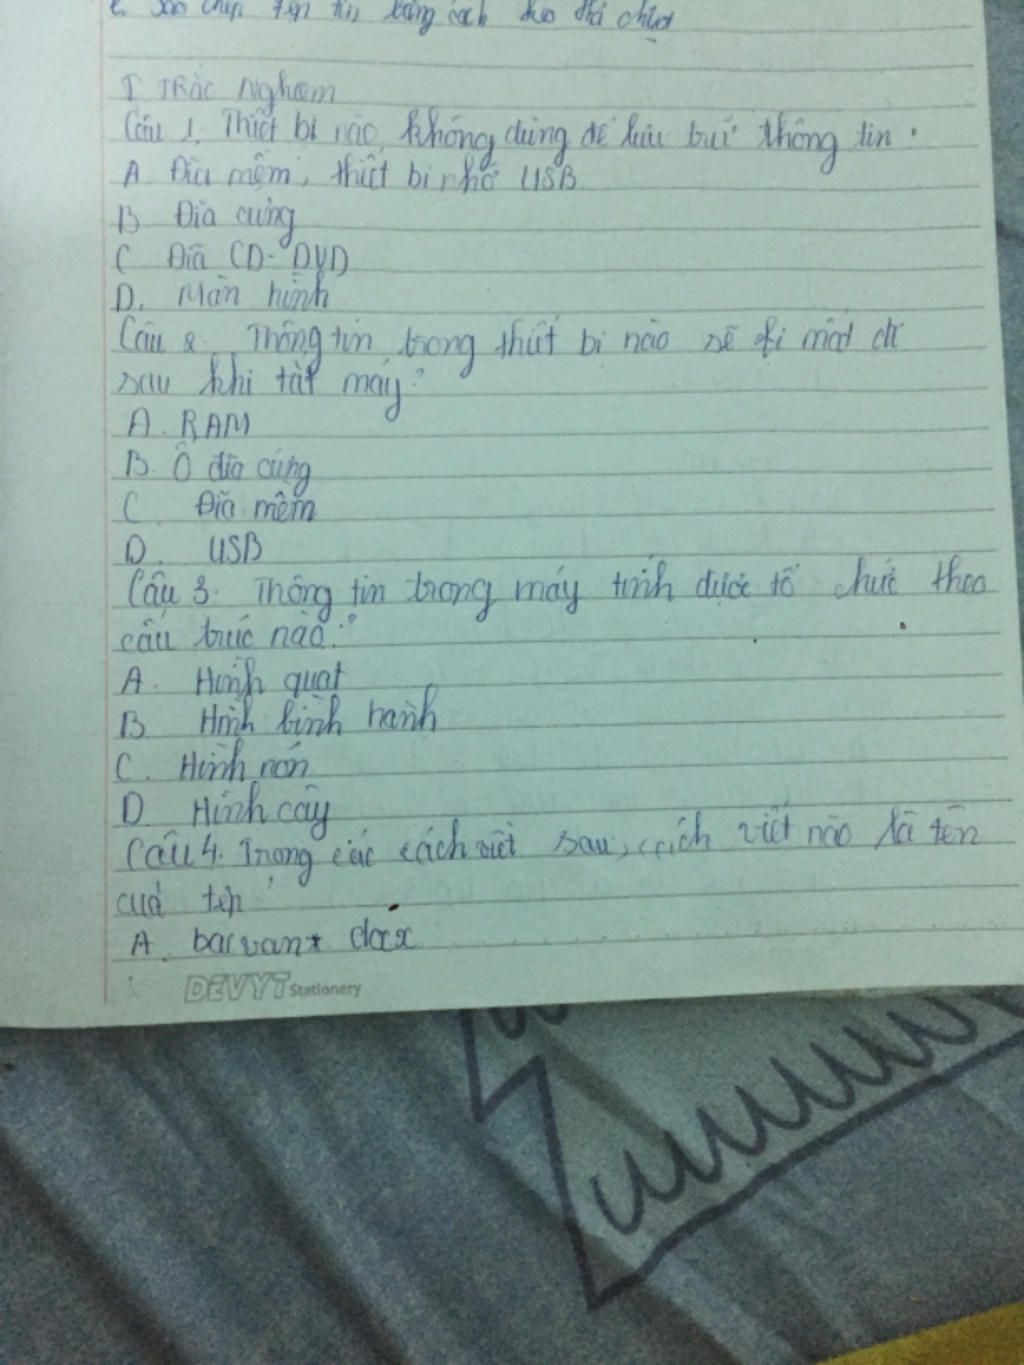 sao chép tệp tin bằng cách kéo thả chuột
I Trắc Nghiệm
Câu 1. Thiết bị nào không dùng để lưu trữ thông tin.
A Đĩa mềm, thiết bị nhớ USB
B Đĩa cứng
C Đĩa CD-DVD
D. Màn hình
Câu 2. Thông tin trong thiết bị nào sẽ bị mất đi
sau khi tắt máy?
A. RAM
B. Ổ đĩa cứng
C. Đĩa mềm
D. USB
Câu 3. Thông tin trong máy tính được tổ chức theo
cấu trúc nào?
A. Hình quạt
B Hình bình hành
C. Hình nón
D Hình cây
Câu 4. Trong các cách viết sau, cách viết nào là tên
của tệp
A. baivan* docx
DEVYT Stationery